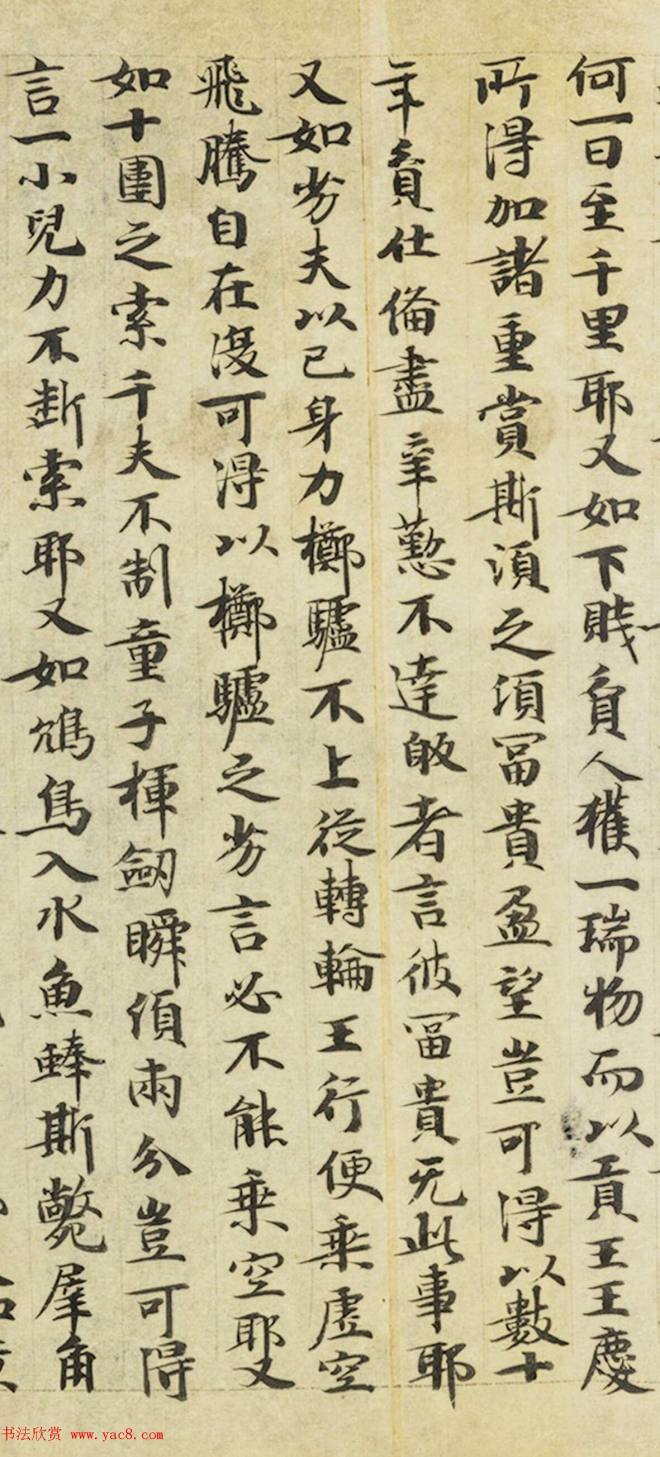 何一日至千里耶又如下賤貧人獲一瑞物而以貢王王慶
所得加諸重賞斯湏之湏冨貴盈望豈可得以數十
年貧仕俻盡辛懃不達敀者言彼冨貴无此事耶
又如劣夫以己身力擲驢不上從轉輪王行便乘虛空
飛騰自在復可得以擲驢之劣言必不能乘空耶又
如十圍之索千夫不制童子揮劔瞬湏兩分豈可得
言一小兒力不斷索耶又如鴆鳥入水魚蜯斯斃犀角
书法欣赏 www.yac8.com